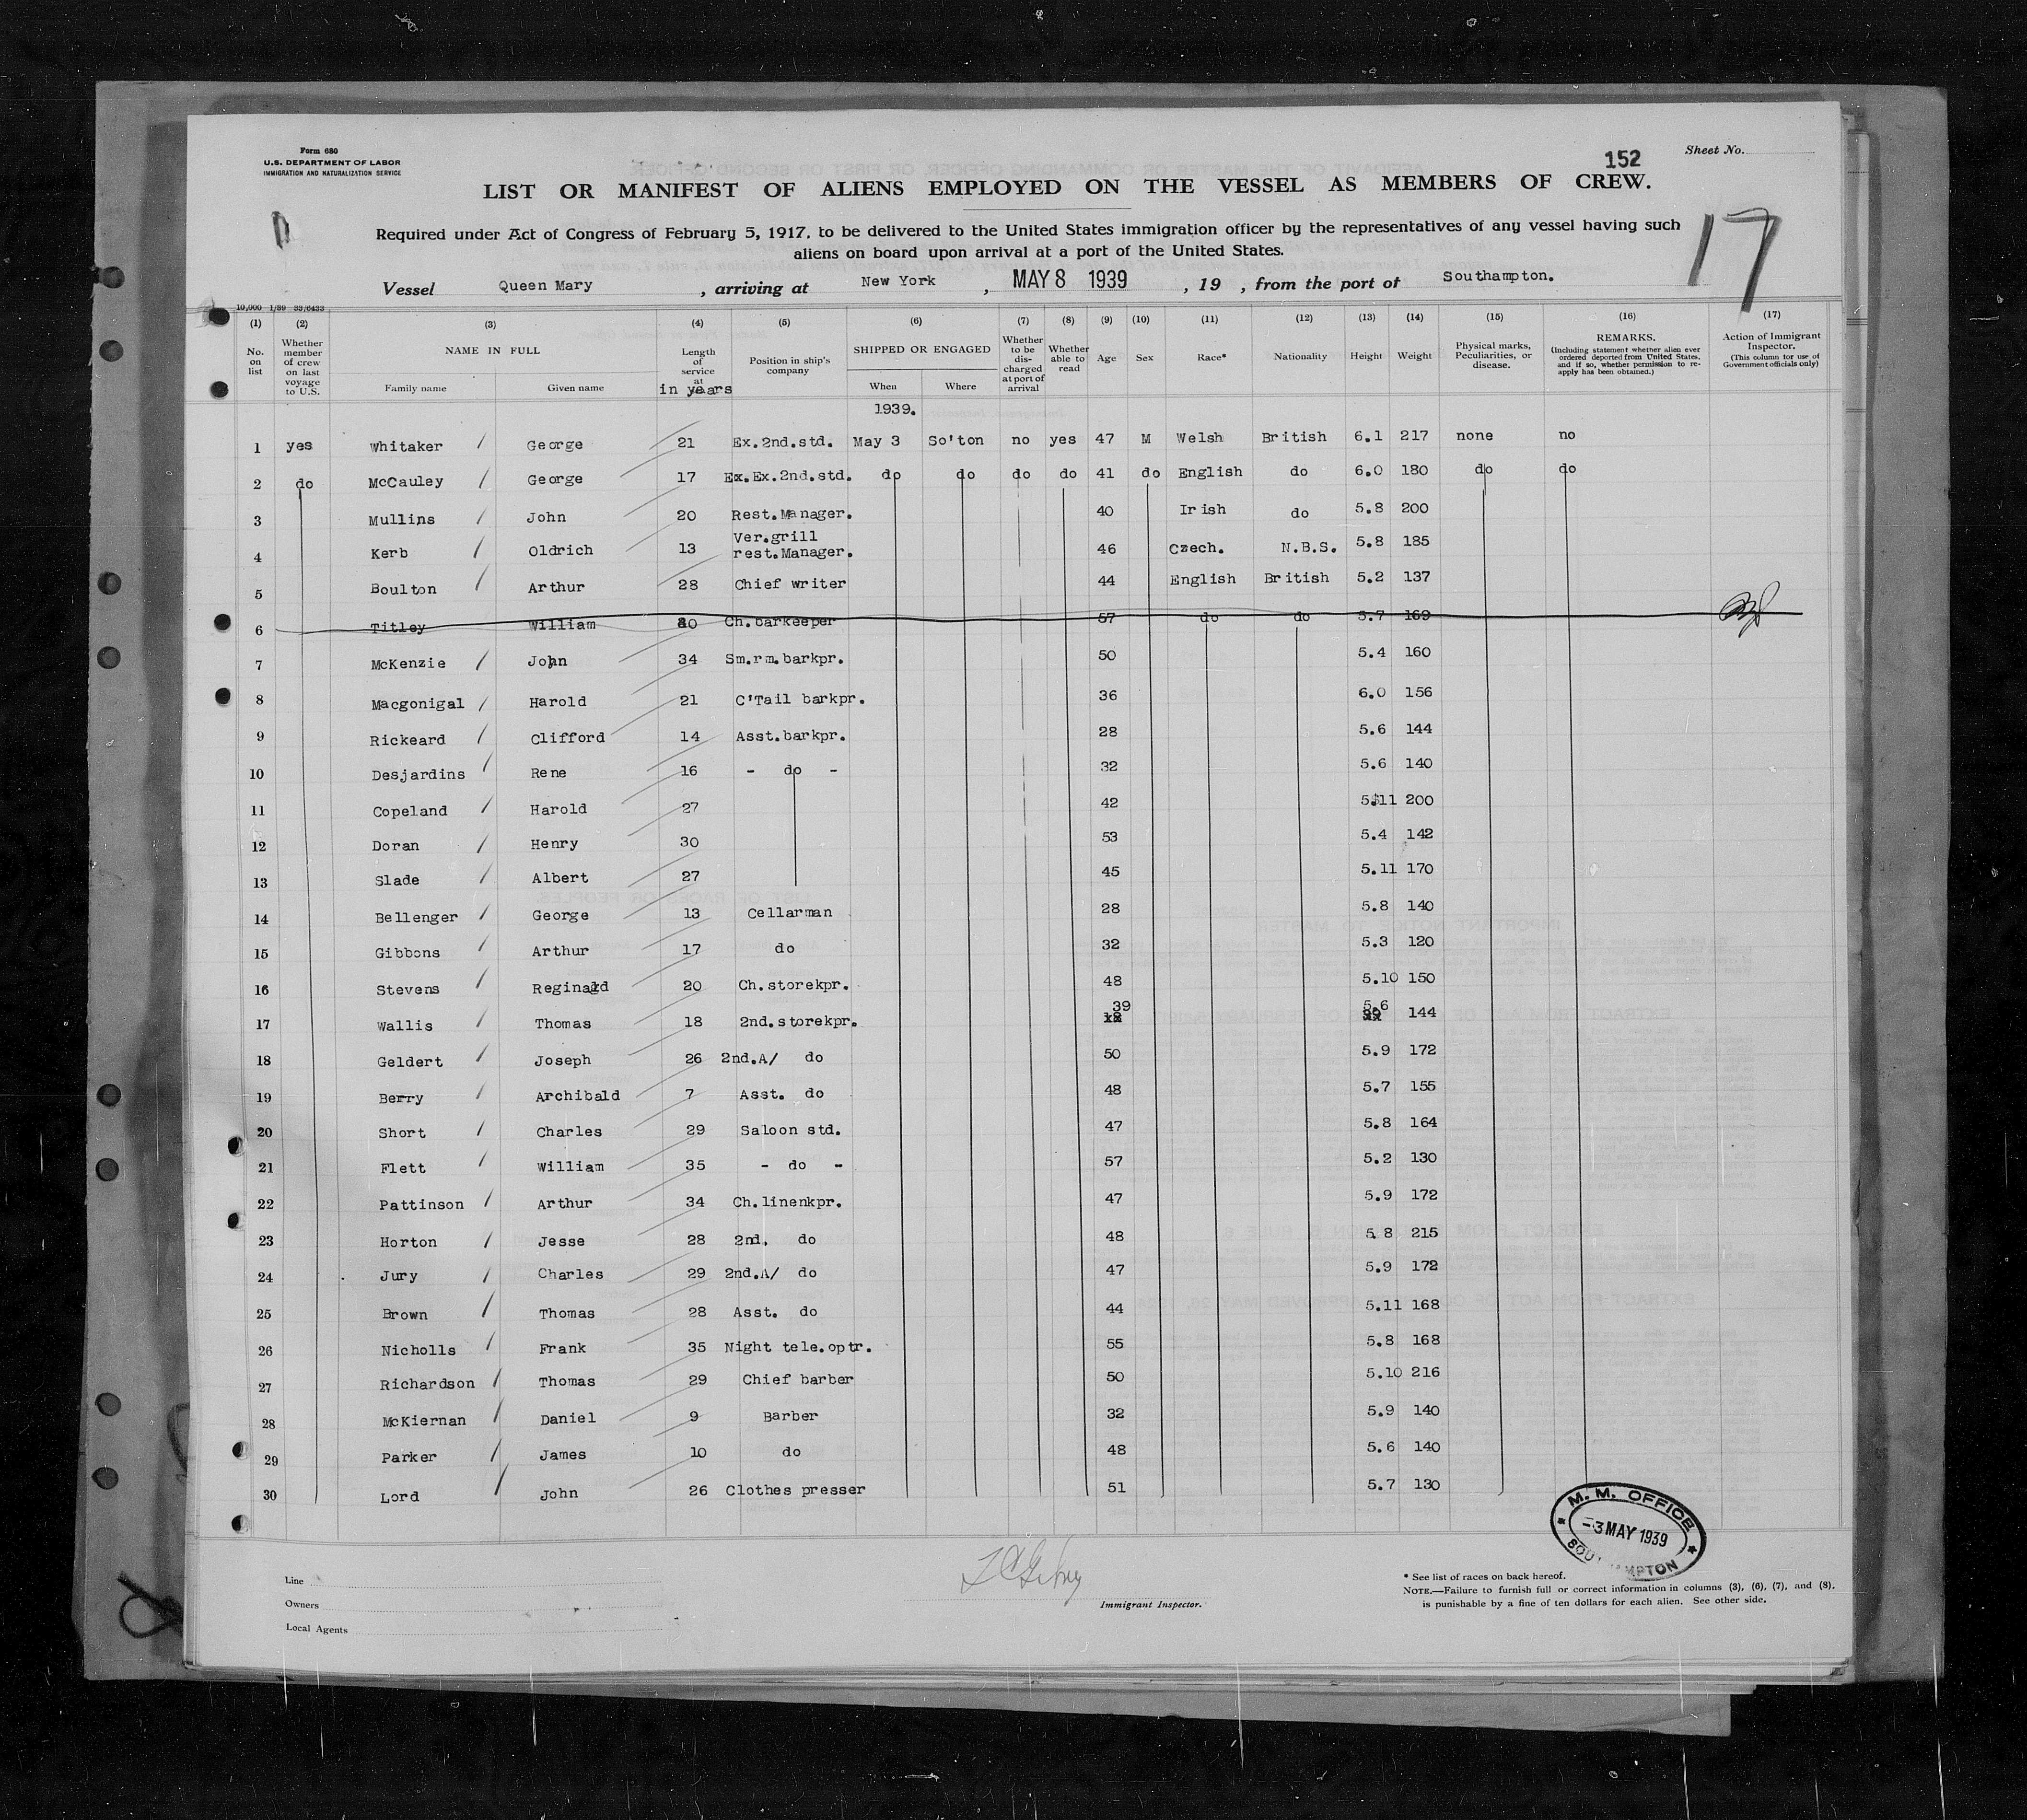 Form 680
U.S. DEPARTMENT OF LABOR
IMMIGRATION AND NATURALIZATION SERVICE
152
Sheet No.
LIST OR MANIFEST OF ALIENS EMPLOYED ON THE VESSEL AS MEMBERS OF CREW.
17
Required under Act of Congress of February 5, 1917, to be delivered to the United States immigration officer by the representatives of any vessel having such
aliens on board upon arrival at a port of the United States.
Vessel Queen Mary , arriving at New York , MAY 8 1939 , 19 , from the port of Southampton.
10,000 1/39 33/6433
(1) (2) (3) (4) (5) (6) (7) (8) (9) (10) (11) (12) (13) (14) (15) (16) (17)
No. on list
Whether member of crew on last voyage to U.S.
NAME IN FULL
Family name Given name
Length of service at in years
Position in ship's company
SHIPPED OR ENGAGED
When Where
Whether to be discharged at port of arrival
Whether able to read
Age Sex Race* Nationality Height Weight
Physical marks, Peculiarities, or disease.
REMARKS.
(Including statement whether alien ever ordered deported from United States, and if so, whether permission to re-apply has been obtained.)
Action of Immigrant Inspector.
(This column for use of Government officials only)
1939.
1 yes Whitaker George 21 Ex.2nd.std. May 3 So'ton no yes 47 M Welsh British 6.1 217 none no
2 do McCauley George 17 Ex.Ex.2nd.std. do do do do 41 do English do 6.0 180 do do
3 Mullins John 20 Rest.Manager. 40 Irish do 5.8 200
4 Kerb Oldrich 13 Ver.grill rest.Manager. 46 Czech. N.B.S. 5.8 185
5 Boulton Arthur 28 Chief writer 44 English British 5.2 137
6 Titley William 40 Ch.barkeeper 57 do do 5.7 169
7 McKenzie John 34 Sm.rm.barkpr. 50 5.4 160
8 Macgonigal Harold 21 C'Tail barkpr. 36 6.0 156
9 Rickeard Clifford 14 Asst.barkpr. 28 5.6 144
10 Desjardins Rene 16 - do - 32 5.6 140
11 Copeland Harold 27 42 5.11 200
12 Doran Henry 30 53 5.4 142
13 Slade Albert 27 45 5.11 170
14 Bellenger George 13 Cellarman 28 5.8 140
15 Gibbons Arthur 17 do 32 5.3 120
16 Stevens Reginald 20 Ch.storekpr. 48 5.10 150
17 Wallis Thomas 18 2nd.storekpr. 39 5.6 144
18 Geldert Joseph 26 2nd.A/ do 50 5.9 172
19 Berry Archibald 7 Asst. do 48 5.7 155
20 Short Charles 29 Saloon std. 47 5.8 164
21 Flett William 35 - do - 57 5.2 130
22 Pattinson Arthur 34 Ch.linenkpr. 47 5.9 172
23 Horton Jesse 28 2nd. do 48 5.8 215
24 Jury Charles 29 2nd.A/ do 47 5.9 172
25 Brown Thomas 28 Asst. do 44 5.11 168
26 Nicholls Frank 35 Night tele.optr. 55 5.8 168
27 Richardson Thomas 29 Chief barber 50 5.10 216
28 McKiernan Daniel 9 Barber 32 5.9 140
29 Parker James 10 do 48 5.6 140
30 Lord John 26 Clothes presser 51 5.7 130
M. M. OFFICE
-3 MAY 1939
SOUTHAMPTON
Line
Owners
Local Agents
Immigrant Inspector.
* See list of races on back hereof.
NOTE.—Failure to furnish full or correct information in columns (3), (6), (7), and (8),
is punishable by a fine of ten dollars for each alien. See other side.